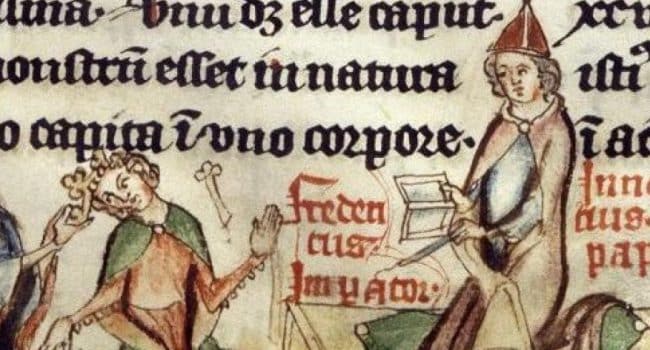 Vnũ dꝫ esse caput.
monstrũ esset in natura isti
o capita ĩ vno corpore.
Frederi
cus
Impator.
Inno
cius
pap